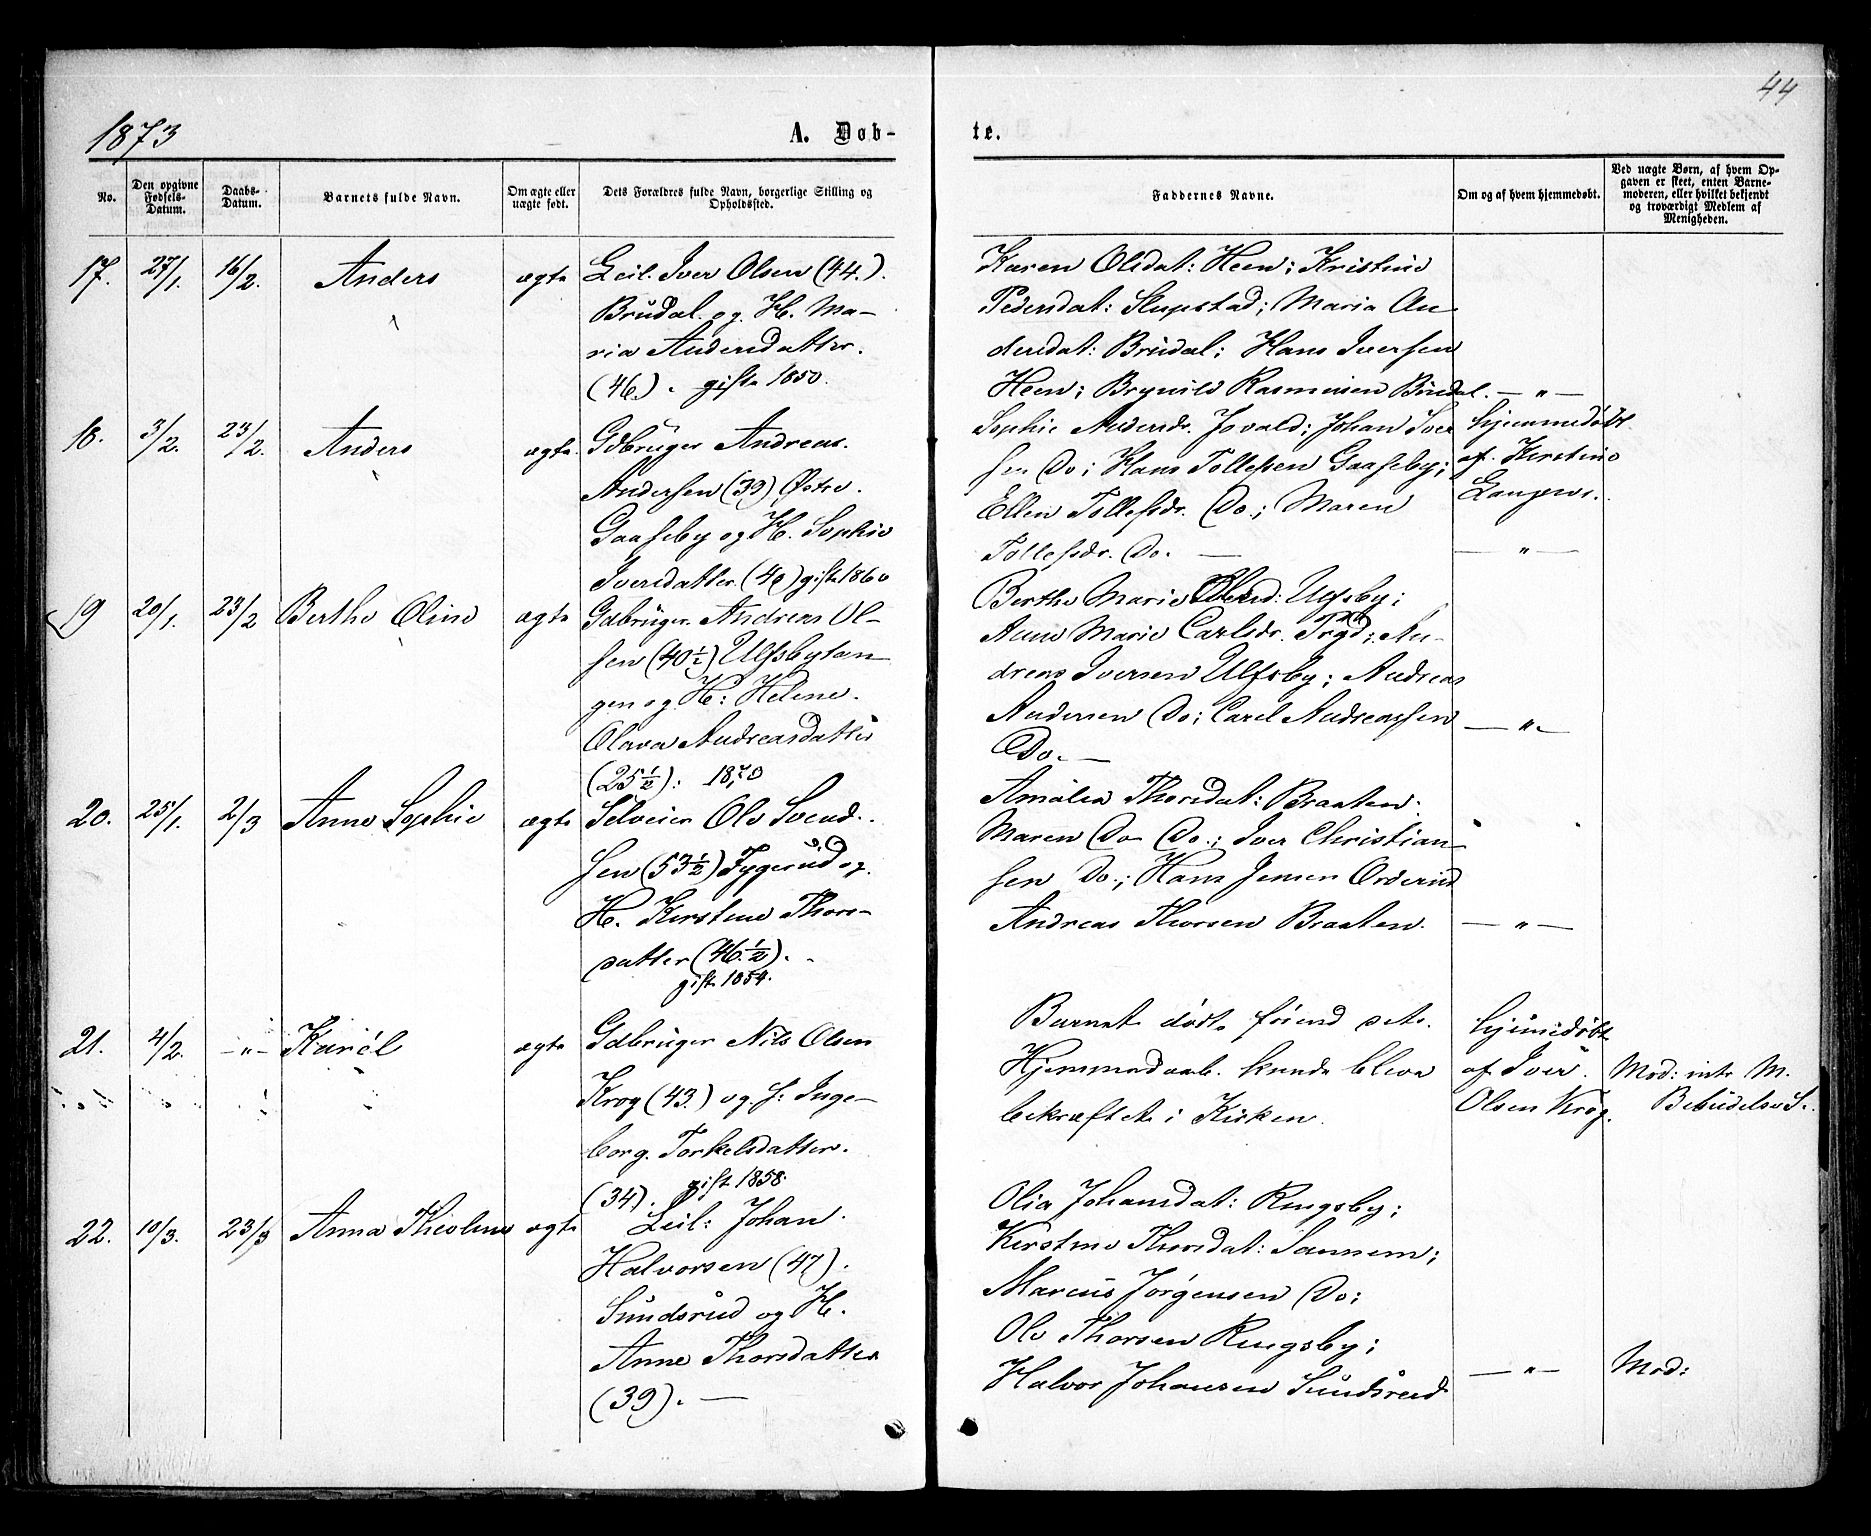 44
1873
A. Døb-
te.
No.
Den opgivne Fødsels-Datum.
Daabs-Datum.
Barnets fulde Navn.
Om ægte eller uægte født.
Dets Forældres fulde Navn, borgerlige Stilling og Opholdssted.
Faddernes Navne.
Om og af hvem hjemmedøbt.
Ved uægte Børn, af hvem Op-
gaven er skeet, enten Barne-
moderen, eller hvilket bekjendt
og troværdigt Medlem af
Menigheden.
17. 27/1. 16/2. Anders ægte Leil. Iver Olsen (44.).
Brúdal. og H. Ma-
ria Andersdatter.
(46.). gift 1850.
Karen Olsdat: Heen; Kristine
Pedersdat: Slupstad; Maria An
dersdat: Brúdal; Hans Iversen
Heen; Brynild Rasmussen Brúdal. — „ —
18. 3/2. 23/2. Anders ægte. Gdbrúger Andreas.
Andersen (39) Østre.
Gaaseby og H. Sophie
Iversdatter (40) gift 1860
Sophie Andersdr. Isvald; Johan Iver
sen Do; Hans Tollefsen Gaaseby;
Ellen Tollefsdr. Do; Maren
Tollefsdr. Do. —
hjemmedøbt
af Kirstine
— „ —
19 20/1. 23/2 Berthe Oline ægte Gdbrúger. Andreas Ol-
sen (40 1/2) Ulfsbytan-
gen og H: Helene.
Olava Andreasdatter
(25 1/2). 1870
Berthe Marie Ulfsby;
Anne Marie Carlsdr. An-
dreas Iversen Ulfsby; Andreas
Andersen Do; Carel Andreassen
Do. —
— „ —
20. 25/1. 2/3 Anne Sophie ægte Selveier Ole Svend.
sen (53 1/2) Tygerúd og.
H. Kirstine Thors-
datter (46 1/2).
gift 1854.
Amalia Thorsdat: Braaten.
Maren Do Do.; Iver Christian-
sen Do.; Hans Jensen Orderud
Andreas Thorsen Braaten. — „ —
21. 4/2. — „ — Karél ægte Gdbruger Nils Olsen
Krog (43.) og. H: Inge-
borg. Torkelsdatter.
(34). gift 1858.
Barnet døde førend dets.
Hjemmedaab. kunde blive
bekræftet i Kirken.
hjemmedøbt
af Iver.
Olsen Krog.
Mod: intr M.
22. 10/3. 23/3 Anna Theoline ægte Leil: Johan.
Halvorsen (47).
Súndsrúd og H.
Anne Thorsdatter
(39). —
Olia Johansdat: Ringsby;
Kirstine Thorsdat: Sannem;
Marcús Jørgensen Do;
Ole Thorsen Ringsby;
Halvor Johansen Súndsrud
— „ —
Mod: